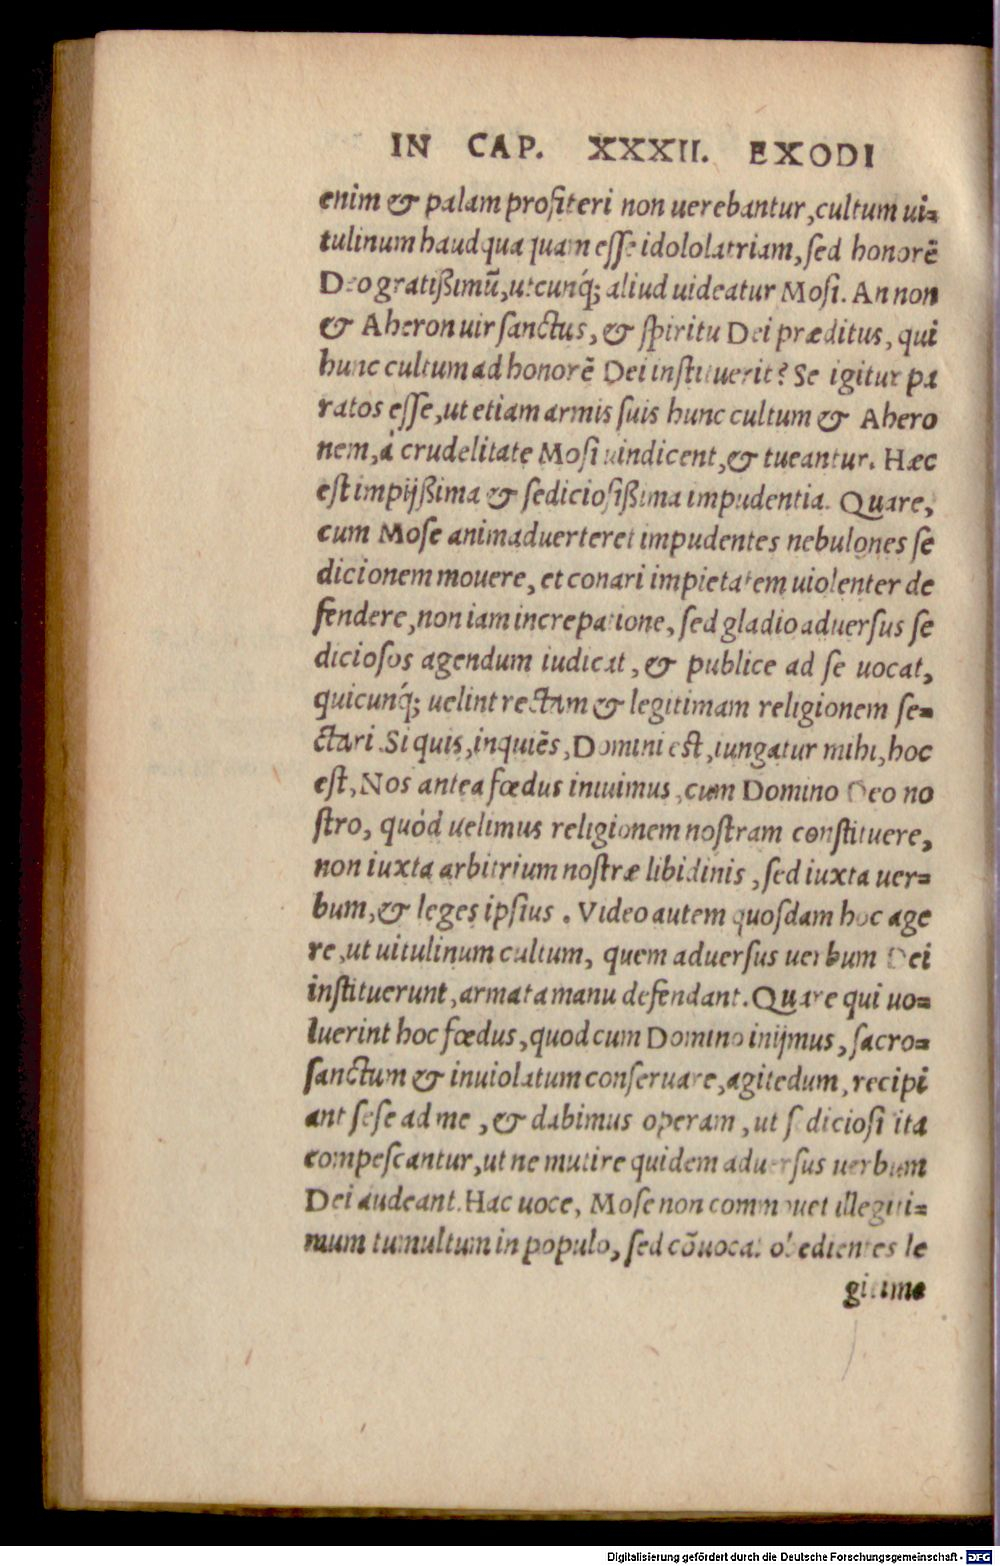 IN CAP. XXXII. EXODI
enim & palam profiteri non uerebantur, cultum ui=
tulinum haudquaquam esse idololatriam, sed honorē
Deo gratißimū, utcunq́; aliud uideatur Mosi. An non
& Aheron uir sanctus, & spiritu Dei præditus, qui
hunc cultum ad honorē Dei instituerit? Se igitur pa
ratos esse, ut etiam armis suis hunc cultum & Ahero
nem, à crudelitate Mosi uindicent, & tueantur. Hæc
est impijßima & sediciosißima impudentia. Quare,
cum Mose animaduerteret impudentes nebulones se
dicionem mouere, et conari impietatem uiolenter de
fendere, non iam increpatione, sed gladio aduersus se
diciosos agendum iudicat, & publice ad se uocat,
quicunq́; uelint rectam & legitimam religionem se=
ctari. Si quis, inquiēs, Domini est, iungatur mihi, hoc
est, Nos antea fœdus iniuimus, cum Domino Deo no
stro, quód uelimus religionem nostram constituere,
non iuxta arbitrium nostræ libidinis, sed iuxta uer=
bum, & leges ipsius. Video autem quosdam hoc age
re, ut uitulinum cultum, quem aduersus uerbum Dei
instituerunt, armata manu defendant. Quare qui uo=
luerint hoc fœdus, quod cum Domino inijmus, sacro=
sanctum & inuiolatum conseruare, agitedum, recipi
ant sese ad me, & dabimus operam, ut sediciosi ita
compescantur, ut ne mutire quidem aduersus uerbum
Dei audeant. Hac uoce, Mose non commouet illegiti=
mum tumultum in populo, sed cōuocat obedientes le
gitime
Digitalisierung gefördert durch die Deutsche Forschungsgemeinschaft - DFG